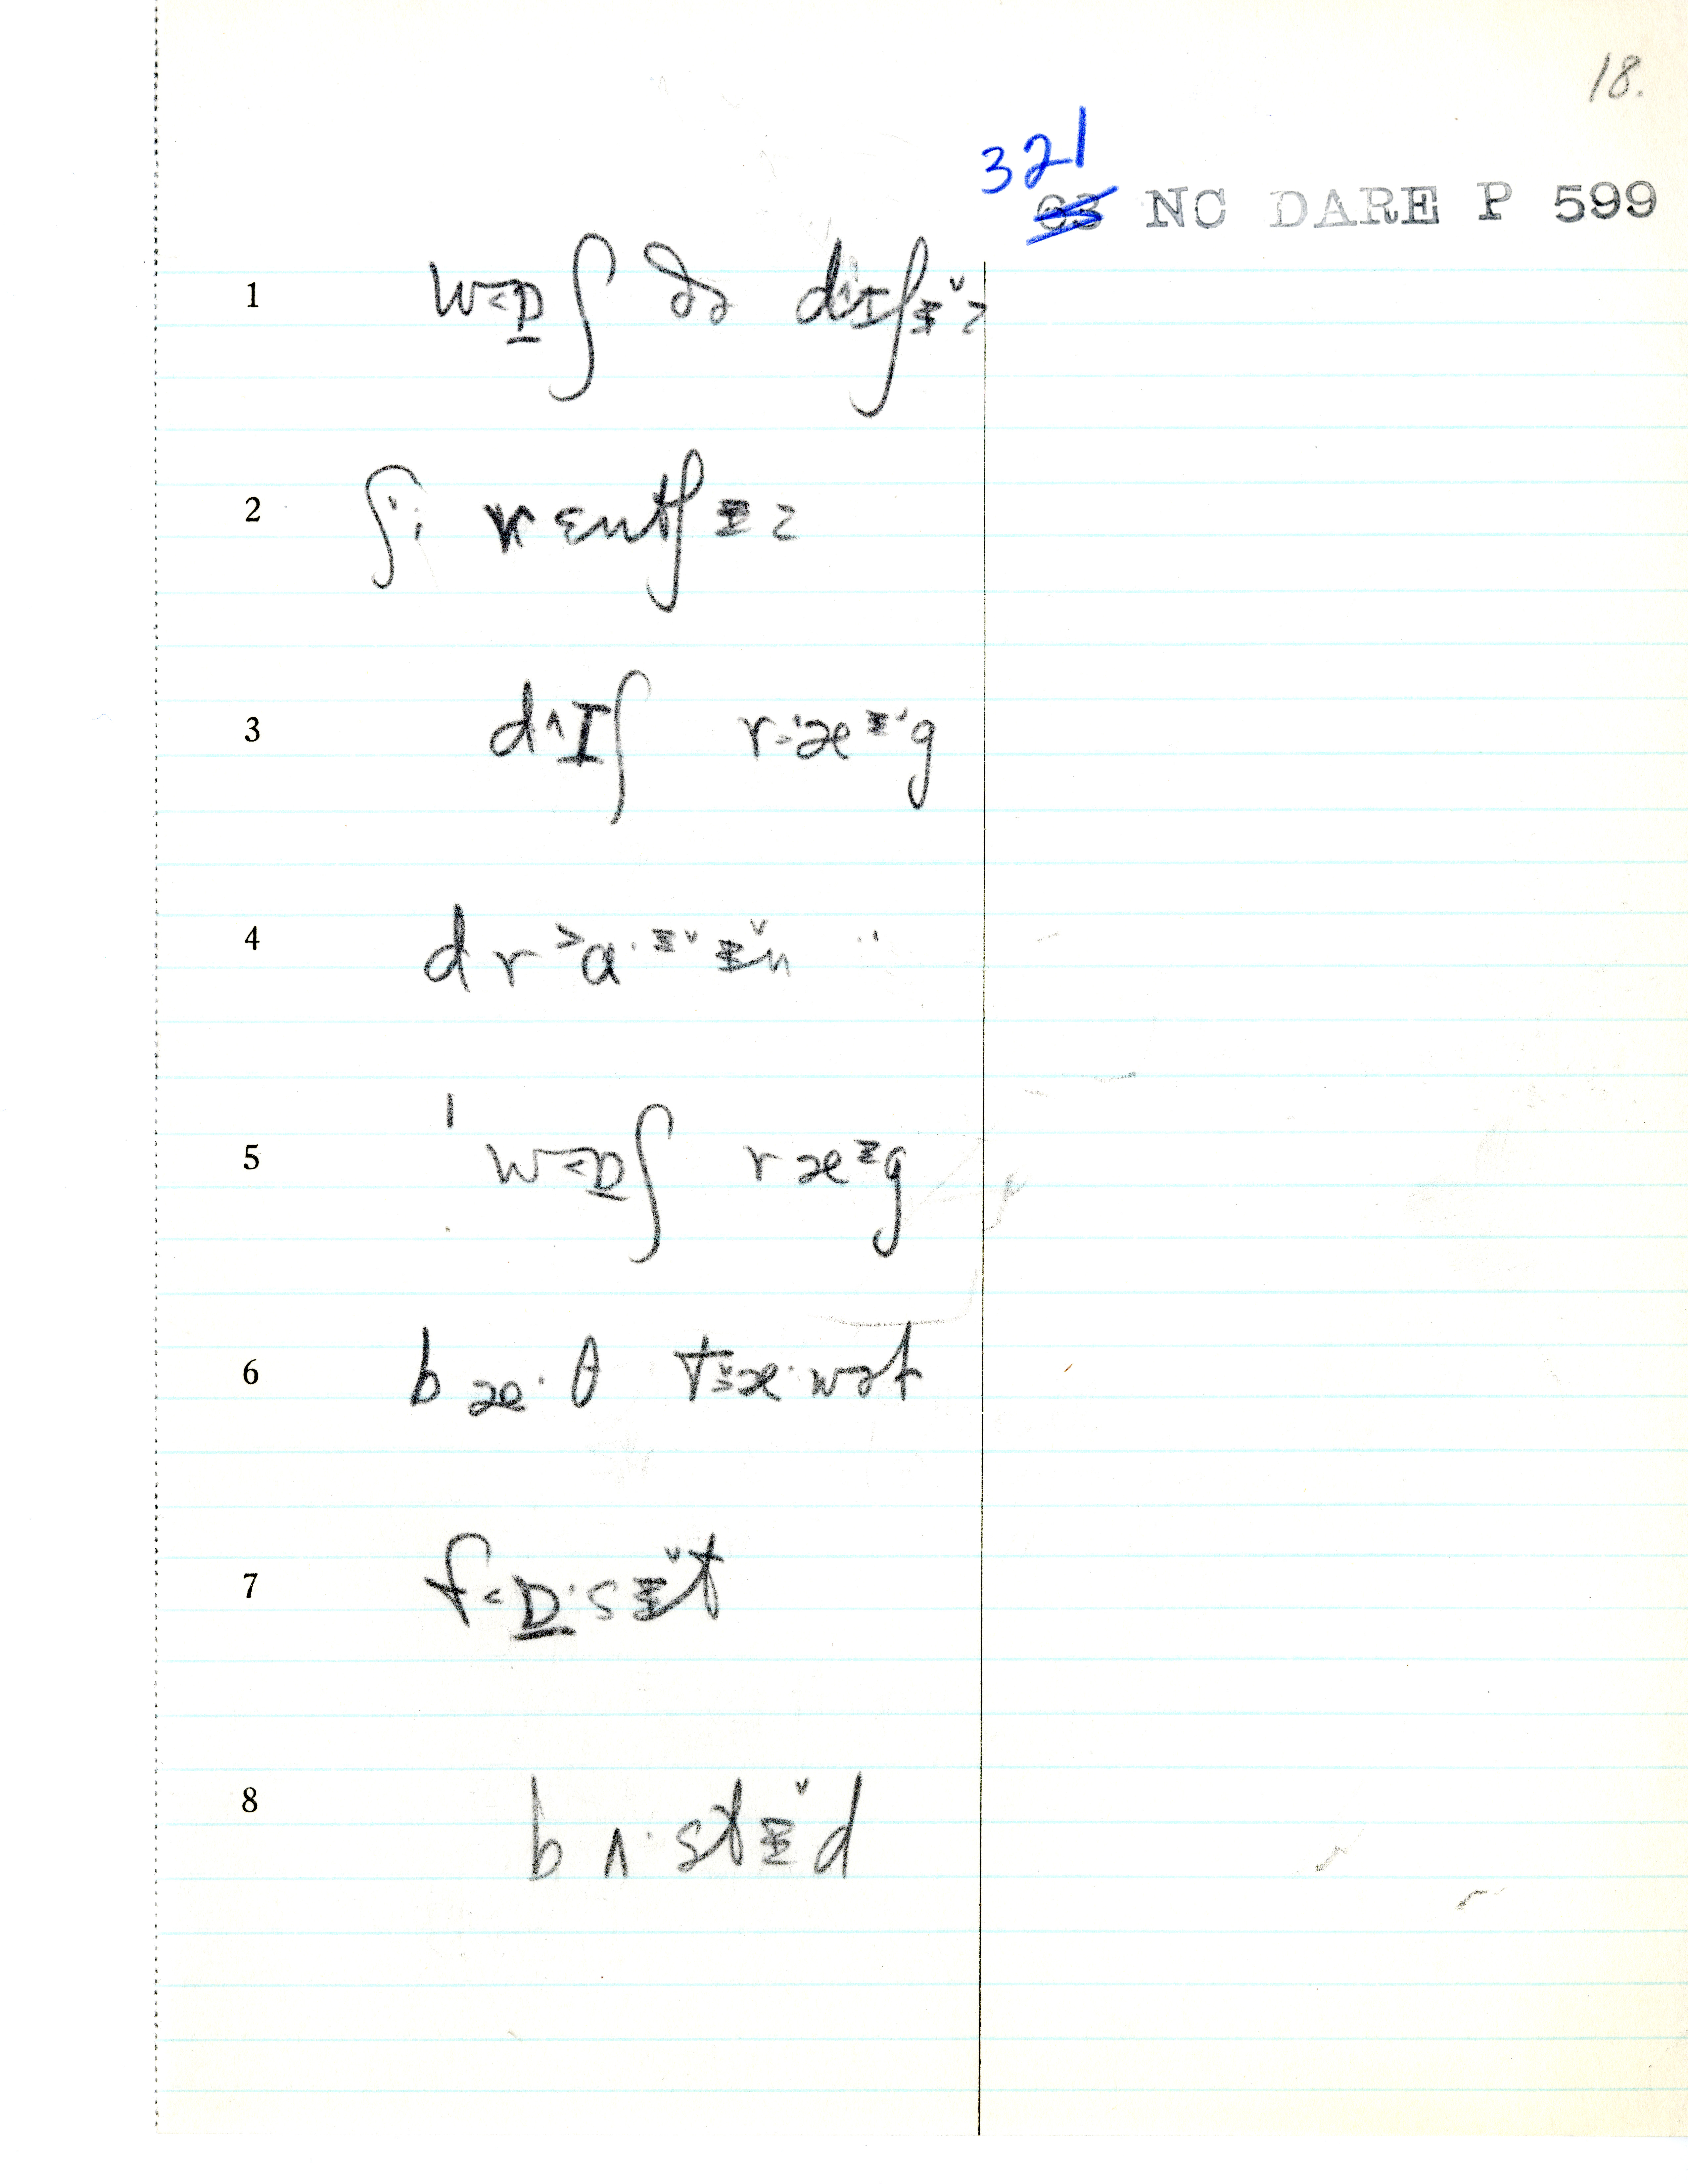 18.
321
63 NC DARE P 599
1 w<ɒ̠ʃ ðə d^ɪʃɨ̌z
2 ʃi rɛntʃɨz
3 d^ɪʃ ræɨg
4 dr>a·ɨ̌ɨ̌n
5 w<ɒ̠ʃ ræɨg
6 bæ·θ tæ·wəl
7 f<ɒ̠·sɨ̌t
8 bʌ·stɨ̌d